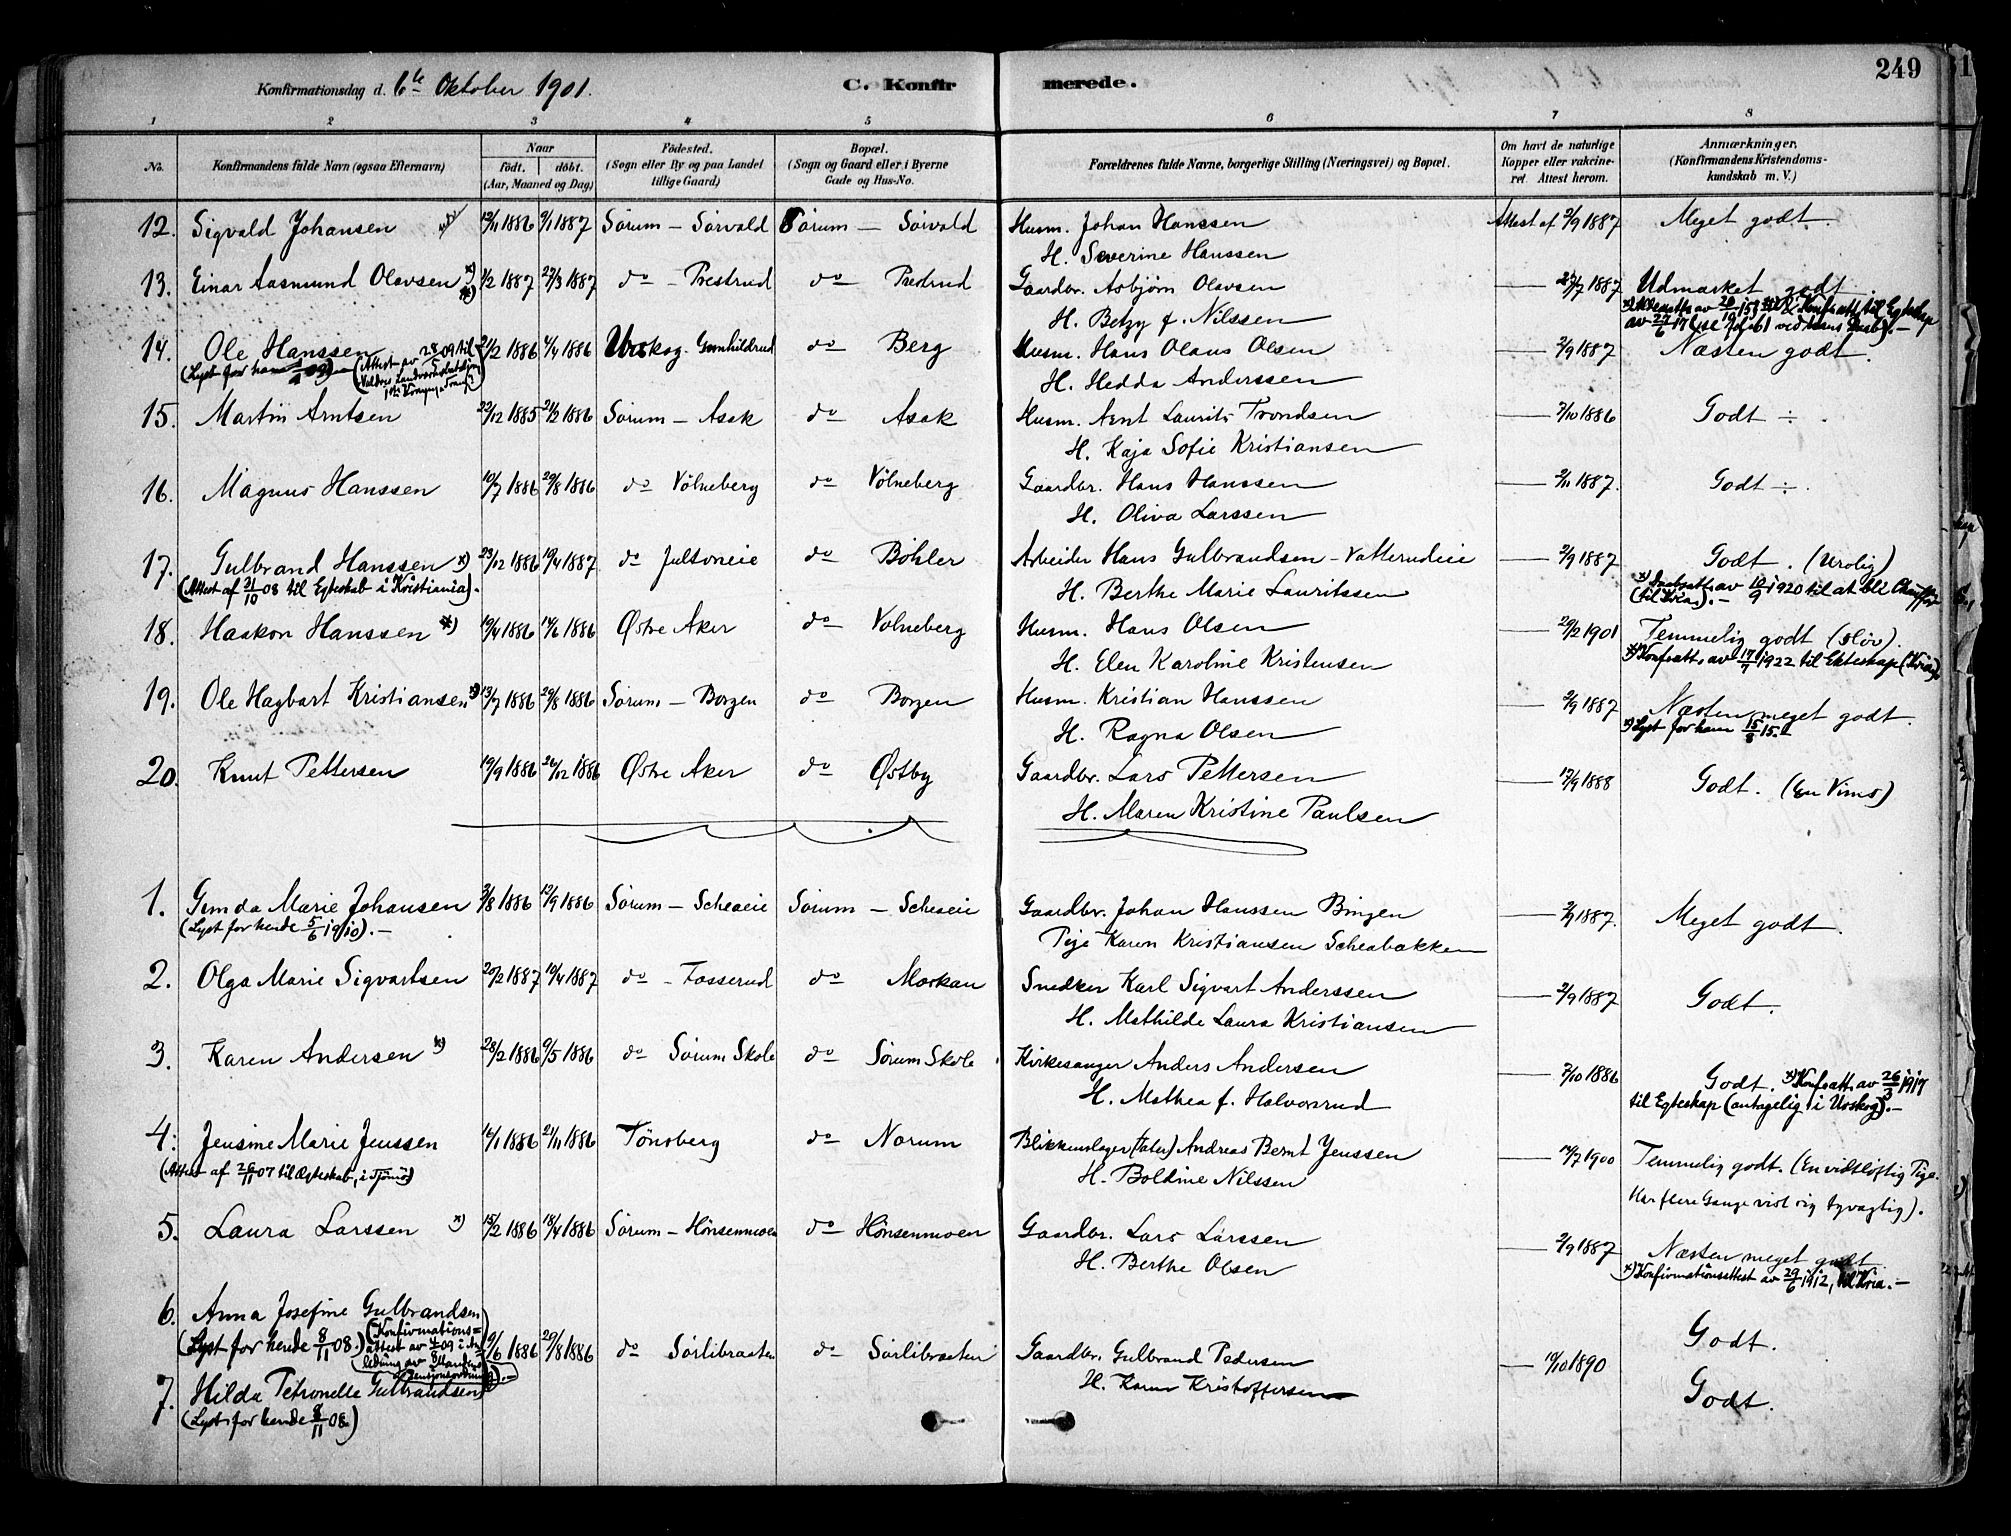 249
Konfirmationsdag d. 6te Oktober 1901. C. Konfirmerede.
1 2 3 4 5 6 7 8
No. Konfirmandens fulde Navn (ogsaa Efternavn) Naar födt. döbt. (Aar, Maaned og Dag) Födested. (Sogn eller By og paa Landet tillige Gaard) Bopæl. (Sogn og Gaard eller i Byerne Gade og Hus-No. Forældrenes fulde Navne, borgerlige Stilling (Næringsvei) og Bopæl. Om havt de naturlige Kopper eller vakcineret. Attest herom. Anmærkninger. (Konfirmandens Kristendomskundskab m. V.)
12. Sigvald Johansen 12/11 1886 9/1 1887 Sörum — Sörvald Sörum — Sörvald Husm. Johan Hanssen Attest af 2/9 1887 Meget godt.
H. Severine Hanssen
13. Einar Aasmund Olavsen x) 1/2 1887 27/3 1887 do — Prestrud do — Prestrud Gaardbr. Asbjörn Olavsen — 27/7 1887 Udmærket godt.
H. Betzy f. Nilssen
14. Ole Hanssen 21/2 1886 4/4 1886 Urskog. Gunhildrud do Berg Husm. Hans Olaus Olsen — 2/9 1887 Næsten godt.
(Lyst for ham
H. Hedda Anderssen
15. Martin Arntsen 22/12 1885 21/2 1886 Sörum — Asak do Asak Husm. Arnt Laurits Trondsen — 7/10 1886 Godt ÷
H. Kaja Sofie Kristiansen
16. Magnus Hanssen 10/7 1886 29/8 1886 do Völneberg do Völneberg Gaardbr. Hans Hanssen — 2/11 1887. Godt ÷.
H. Oliva Larssen
17. Gulbrand Hanssen x) 23/12 1886 19/4 1887 do Jultoneie do Böhler Arbeider Hans Gulbrandsen — Vatterudeie — 2/9 1887 Godt. (Urolig)
(Attest af 21/10 08 til Egteskab i Kristiania). H. Berthe Marie Lauritssen
av 10/9 1920 til at bli Chaufför
18. Haakon Hanssen x) 19/4 1886 14/6 1886 Østre Aker do Volneberg Husm. Hans Olsen — 20/2 1901 Temmelig godt (slöv).
H. Elen Karoline Kristensen x) Konfratt. av 17/7 1922 til Ekteskap (Kria)
19. Ole Hagbart Kristiansen x) 13/7 1886 29/8 1886 Sörum — Borgen do Borgen Husm. Kristian Hanssen — 2/9 1887 Næsten meget godt.
H. Ragna Olsen x) Lyst for ham 15/8 15.
20. Knut Pettersen 19/9 1886 26/12 1886 Østre Aker do Østby Gaardbr. Lars Pettersen — 17/9 1888 Godt. (En Vims)
H. Maren Kristine Paulsen
1. Gunda Marie Johansen 3/8 1886 12/9 1886 Sörum — Scheaeie Sörum — Scheaeie Gaardbr. Johan Hanssen Bingen — 2/9 1887. Meget godt.
(Lyst for hende 5/6 1910).— Pige Karen Kristiansen Scheabakken
2. Olga Marie Sigvartsen 20/2 1887 10/4 1887 do — Fosserud do Morkau Snedker Karl Sigvart Anderssen — 2/9 1887 Godt.
H. Mathilde Laura Kristiansen
3. Karen Andersen x) 28/2 1886 9/5 1886 do Sörum Skole do Sörum Skole Kirkesanger Anders Andersen — 7/10 1886 Godt. x) Konfratt. av 26/3 1917
H. Mathea f. Halvorsrud til Egteskap (antagelig i Urskog).—
4. Jensine Marie Jenssen 14/1 1886 21/11 1886 Tönsberg do Norum Blikkenslager (tater) Andreas Bernt Jenssen — 10/7 1900 Temmelig godt. (En vidtlöftig Pige.
(Attest af 26/11 07 til Ægteskab, i Tjömö) H. Boldine Nilssen Har flere Gange vist sig tyvagtig).
5. Laura Larssen x) 15/2 1886 18/4 1886 Sörum — Hönsenmoen do Hönsenmoen Gaardbr. Lars Larssen — 2/9 1887 Næsten meget godt.
H. Berthe Olsen x) Konfirmationsattest av 29/6 1912, til Kria.—
6. Anna Josefine Gulbrandsen Godt.
(Lyst for hende 8/11 08.) (Konfirmations=attest av 09 9/6 1886 29/8 1886 do Sörlibraaten do Sörlibraaten Gaardbr. Gulbrand Pedersen — 10/10 1890
7. Hilda Petronelle Gulbrandsen H. Karen Kristoffersen Godt.
(Lyst for hende 8/11 08.)